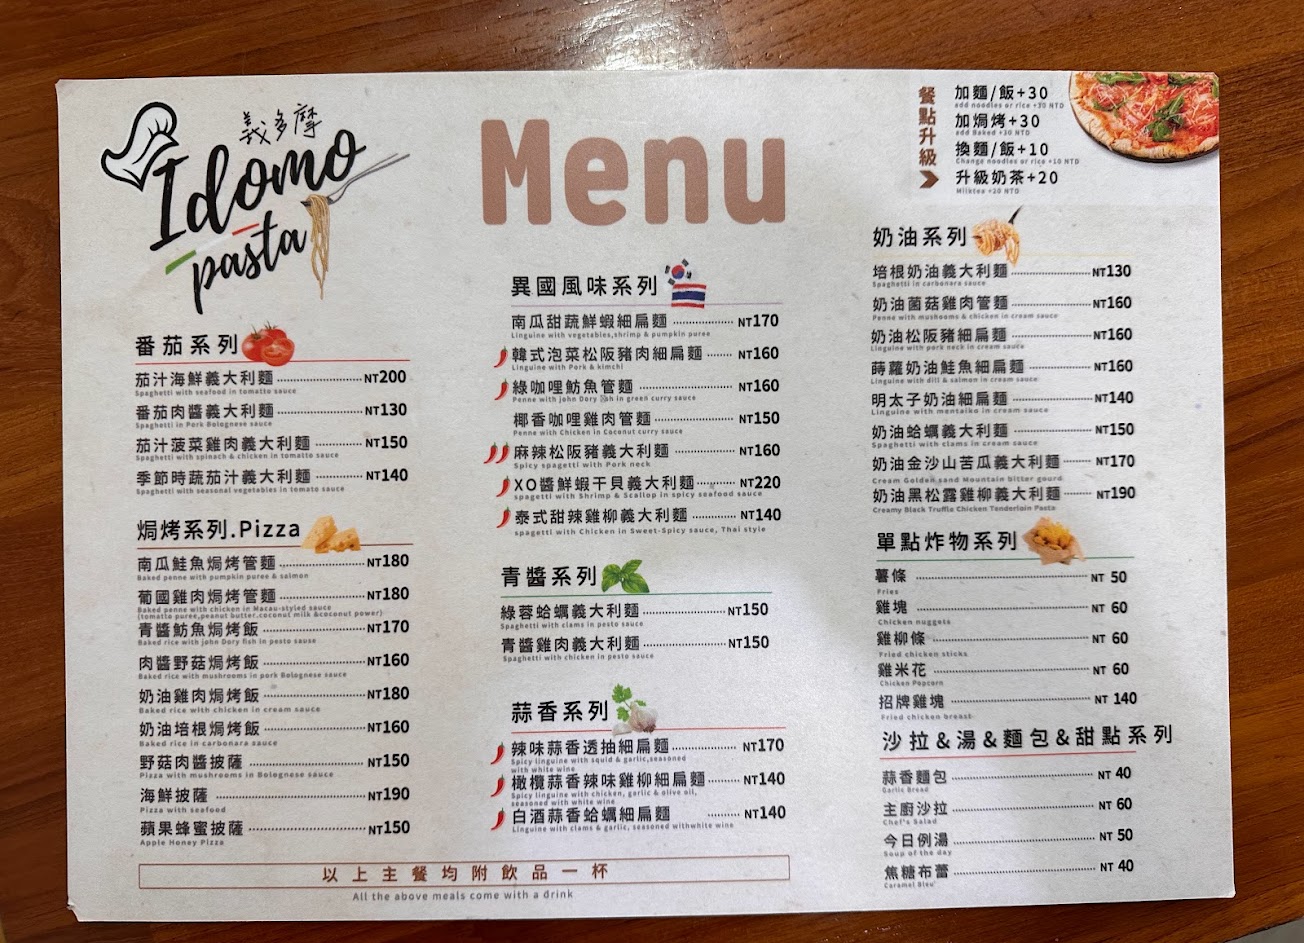 義多摩
Idomo
pasta
Menu
餐點升級
加麵/飯+30
add noodles or rice +30 NTD
加焗烤+30
add Baked +30 NTD
換麵/飯+10
Change noodles or rice +10 NTD
升級奶茶+20
Milktea +20 NTD
番茄系列
茄汁海鮮義大利麵 NT200
Spaghetti with seafood in tomatto sauce
番茄肉醬義大利麵 NT130
Spaghetti in Pork Bolognese sauce
茄汁菠菜雞肉義大利麵 NT150
Spaghetti with spinach & chicken in tomatto sauce
季節時蔬茄汁義大利麵 NT140
Spaghetti with seesonal vegetables in tomatto sauce
焗烤系列.Pizza
南瓜鮭魚焗烤管麵 NT180
Baked penne with pumpkin puree & salmon
葡國雞肉焗烤管麵 NT180
Baked penne with chicken in Macau-styled sauce
(tomatto puree,peanut butter,coconut milk &coconut power)
青醬魴魚焗烤飯 NT170
Baked rice with john Dory fish in pesto sause
肉醬野菇焗烤飯 NT160
Baked rice with mushrooms in pork Bolognese sauce
奶油雞肉焗烤飯 NT180
Baked rice with chicken in cream sauce
奶油培根焗烤飯 NT160
Baked rice in carbonara sauce
野菇肉醬披薩 NT150
Pizza with mushrooms in Bolognese sauce
海鮮披薩 NT190
Pizza with seafood
蘋果蜂蜜披薩 NT150
Apple Honey Pizza
異國風味系列
南瓜甜蔬鮮蝦細扁麵 NT170
Linguine with vegetables,shrimp & pumpkin puree
韓式泡菜松阪豬肉細扁麵 NT160
Linguine with Pork & kimchi
綠咖哩魴魚管麵 NT160
Penne with john Dory fish in green curry sauce
椰香咖哩雞肉管麵 NT150
Penne with Chicken in Coconut curry sauce
麻辣松阪豬義大利麵 NT160
Spicy spagetti with Pork neck
XO醬鮮蝦干貝義大利麵 NT220
spagetti with Shrimp & Scallop in spicy seafood sauce
泰式甜辣雞柳義大利麵 NT140
spagetti with Chicken in Sweet-Spicy sauce, Thai style
青醬系列
綠蓉蛤蠣義大利麵 NT150
Spaghetti with clams in pesto sauce
青醬雞肉義大利麵 NT150
Spaghetti with chicken in pesto sauce
蒜香系列
辣味蒜香透抽細扁麵 NT170
Spicy linguine with squid & garlic,seasoned
with white wine
橄欖蒜香辣味雞柳細扁麵 NT140
Spicy linguine with chicken, garlic & olive oil,
seasoned with white wine
白酒蒜香蛤蠣細扁麵 NT140
Linguine with clams & garlic, seasoned withwhite wine
奶油系列
培根奶油義大利麵 NT130
Spaghetti in carbonara sauce
奶油菌菇雞肉管麵 NT160
Penne with mushooms & chicken in cream sauce
奶油松阪豬細扁麵 NT160
Linguine with pork neck in cream sauce
蒔蘿奶油鮭魚細扁麵 NT160
Linguine with dill & salmon in cream sauce
明太子奶油細扁麵 NT140
Linguine with mentaiko in cream sauce
奶油蛤蠣義大利麵 NT150
Spaghetti with clams in cream cauce
奶油金沙山苦瓜義大利麵 NT170
Cream Golden sand Mountain bitter gourd
奶油黑松露雞柳義大利麵 NT190
Creamy Black Truffle Chicken Tenderloin Pasta
單點炸物系列
薯條 NT 50
Fries
雞塊 NT 60
Chicken nuggets
雞柳條 NT 60
Fried chicken sticks
雞米花 NT 60
Chicken Popcorn
招牌雞塊 NT 140
Fried chicken breast
沙拉&湯&麵包&甜點系列
蒜香麵包 NT 40
Garlic Bread
主廚沙拉 NT 60
Chef's Salad
今日例湯 NT 50
Soup of the day
焦糖布蕾 NT 40
Caramel Bleu'
以上主餐均附飲品一杯
All the above meals come with a drink